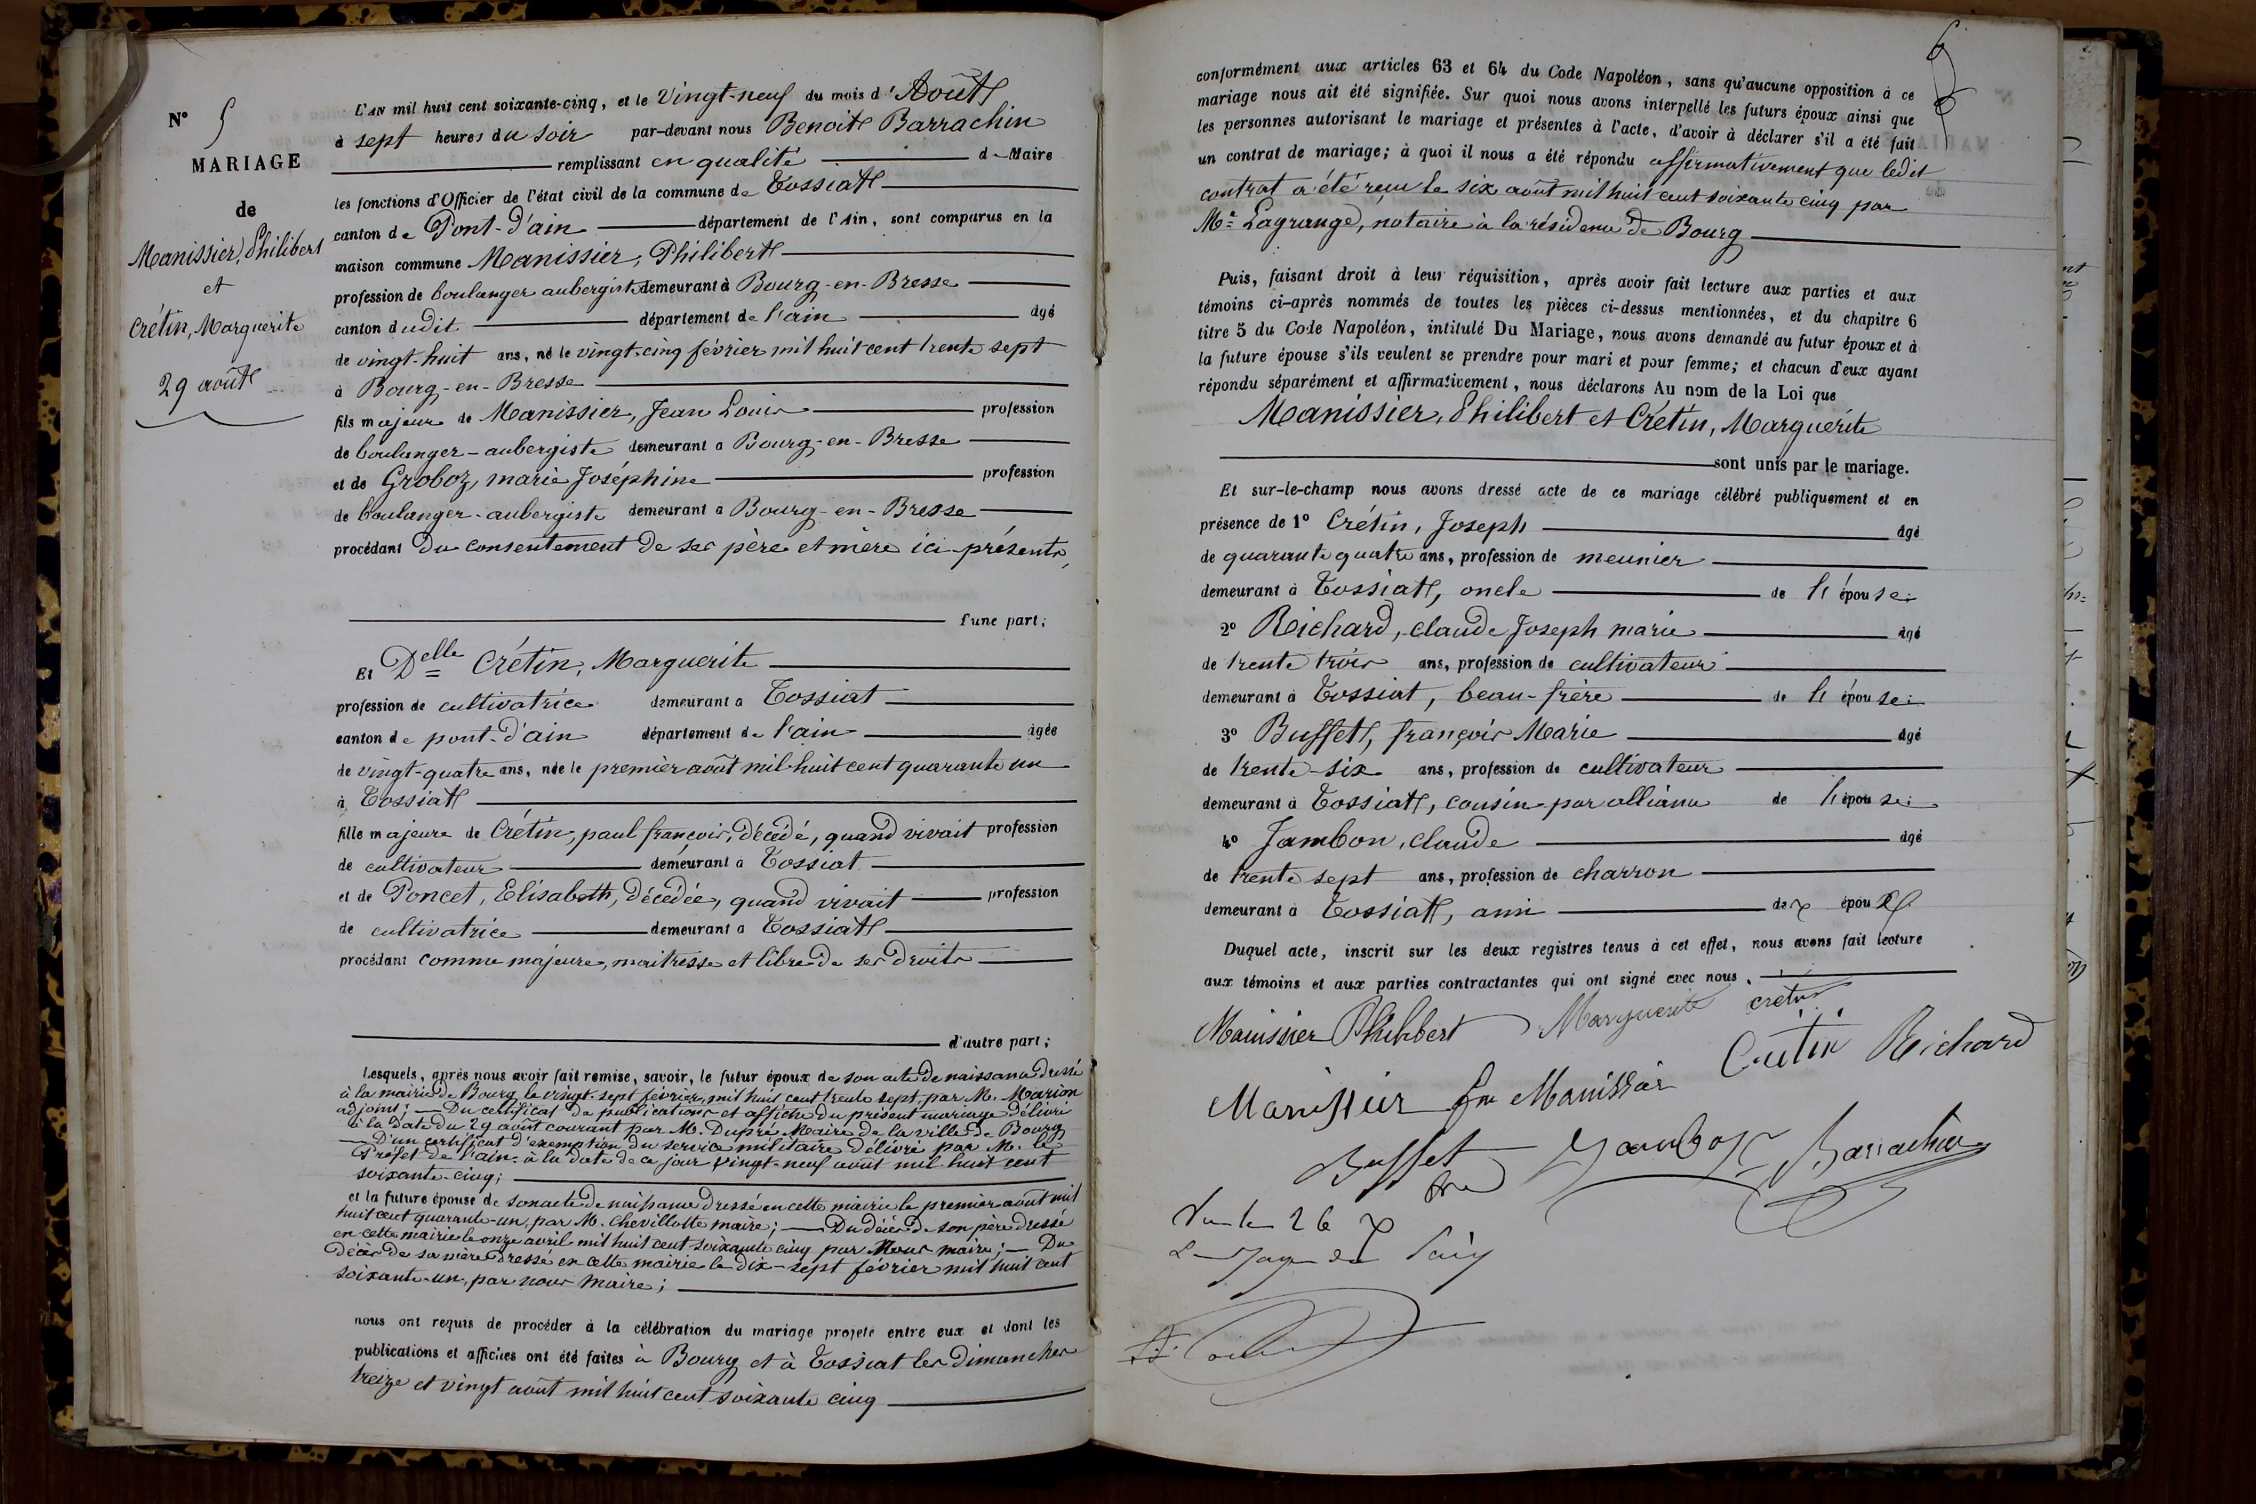 N° 5
MARIAGE
de
Manissier, Philibert
et
Crétin, Marguerite
29 août
L'AN mil huit cent soixante-cinq, et le vingt-neuf du mois d'Août
à sept heures du soir par-devant nous Benoit Barrachin
remplissant en qualité de Maire
les fonctions d'Officier de l'état civil de la commune de Tossiat
canton de Pont-d'ain département de l'Ain, sont comparus en la
maison commune Manissier, Philibert
profession de boulanger aubergiste demeurant à Bourg-en-Bresse
canton dudit département de l'ain âgé
de vingt-huit ans, né le vingt-cinq février mil huit cent trente sept
à Bourg-en-Bresse
fils majeur de Manissier, Jean Louis profession
de boulanger-aubergiste demeurant à Bourg-en-Bresse
et de Groboz, marie Joséphine profession
de boulanger-aubergiste demeurant à Bourg-en-Bresse
procédant du consentement de ses père et mère ici présents,
d'une part;
Et Delle Crétin, Marguerite
profession de cultivatrice demeurant à Tossiat
canton de pont-d'ain département de l'ain âgée
de vingt-quatre ans, née le premier août mil-huit cent quarante un
à Tossiat
fille majeure de Crétin, paul françois, décédé, quand vivait profession
de cultivateur demeurant à Tossiat
et de Poncet, Elisabeth, décédée, quand vivait profession
de cultivatrice demeurant à Tossiat
procédant comme majeure, maitresse et libre de ses droits
d'autre part;
Lesquels, après nous avoir fait remise, savoir, le futur époux de son acte de naissance dressé
à la mairie de Bourg le vingt-sept février, mil huit cent trente sept, par M. Marion
adjoint; — Du certificat de publications et affiche du présent mariage délivré
à la date du 29 août courant par M. Dupré Maire de la ville de Bourg
— D'un certificat d'exemption du service militaire délivré par M. le
Préfet de l'ain à la date de ce jour vingt-neuf août mil huit cent
soixante-cinq;
et la future épouse de son acte de naissance dressé en cette mairie le premier août mil
huit cent quarante-un, par M. Chevillotte maire; — Du décès de son père dressé
en cette mairie le onze avril mil huit cent soixante cinq par Nous maire; — Du
décès de sa mère dressé en cette mairie le dix-sept février mil huit cent
soixante-un, par nous Maire;
nous ont requis de procéder à la célébration du mariage projeté entre eux et dont les
publications et affiches ont été faites à Bourg et à Tossiat les dimanches
treize et vingt août mil huit cent soixante cinq
6
conformément aux articles 63 et 64 du Code Napoléon, sans qu'aucune opposition à ce
mariage nous ait été signifiée. Sur quoi nous avons interpellé les futurs époux ainsi que
les personnes autorisant le mariage et présentes à l'acte, d'avoir à déclarer s'il a été fait
un contrat de mariage; à quoi il nous a été répondu affirmativement que ledit
contrat a été reçu le six août mil huit cent soixante cinq par
Me Lagrange, notaire à la résidence de Bourg
Puis, faisant droit à leur réquisition, après avoir fait lecture aux parties et aux
témoins ci-après nommés de toutes les pièces ci-dessus mentionnées, et du chapitre 6
titre 5 du Code Napoléon, intitulé Du Mariage, nous avons demandé au futur époux et à
la future épouse s'ils veulent se prendre pour mari et pour femme; et chacun d'eux ayant
répondu séparément et affirmativement, nous déclarons Au nom de la Loi que
Manissier, Philibert et Crétin, Marguerite
sont unis par le mariage.
Et sur-le-champ nous avons dressé acte de ce mariage célébré publiquement et en
présence de 1° Crétin, Joseph âgé
de quarante quatre ans, profession de meunier
demeurant à Tossiat, oncle de l'épouse;
2° Richard, claude Joseph marie âgé
de trente trois ans, profession de cultivateur
demeurant à Tossiat, beau-frère de l'épouse;
3° Buffet, françois Marie âgé
de trente-six ans, profession de cultivateur
demeurant à Tossiat, cousin par alliance de l'épouse;
4° Jambon, claude âgé
de trente sept ans, profession de charron
demeurant à Tossiat, ami des époux
Duquel acte, inscrit sur les deux registres tenus à cet effet, nous avons fait lecture
aux témoins et aux parties contractantes qui ont signé avec nous.
Manissier Philibert Marguerite crétin
Crétin Richard
Manissier fme Manissier
Buffet Jambon Barrachin